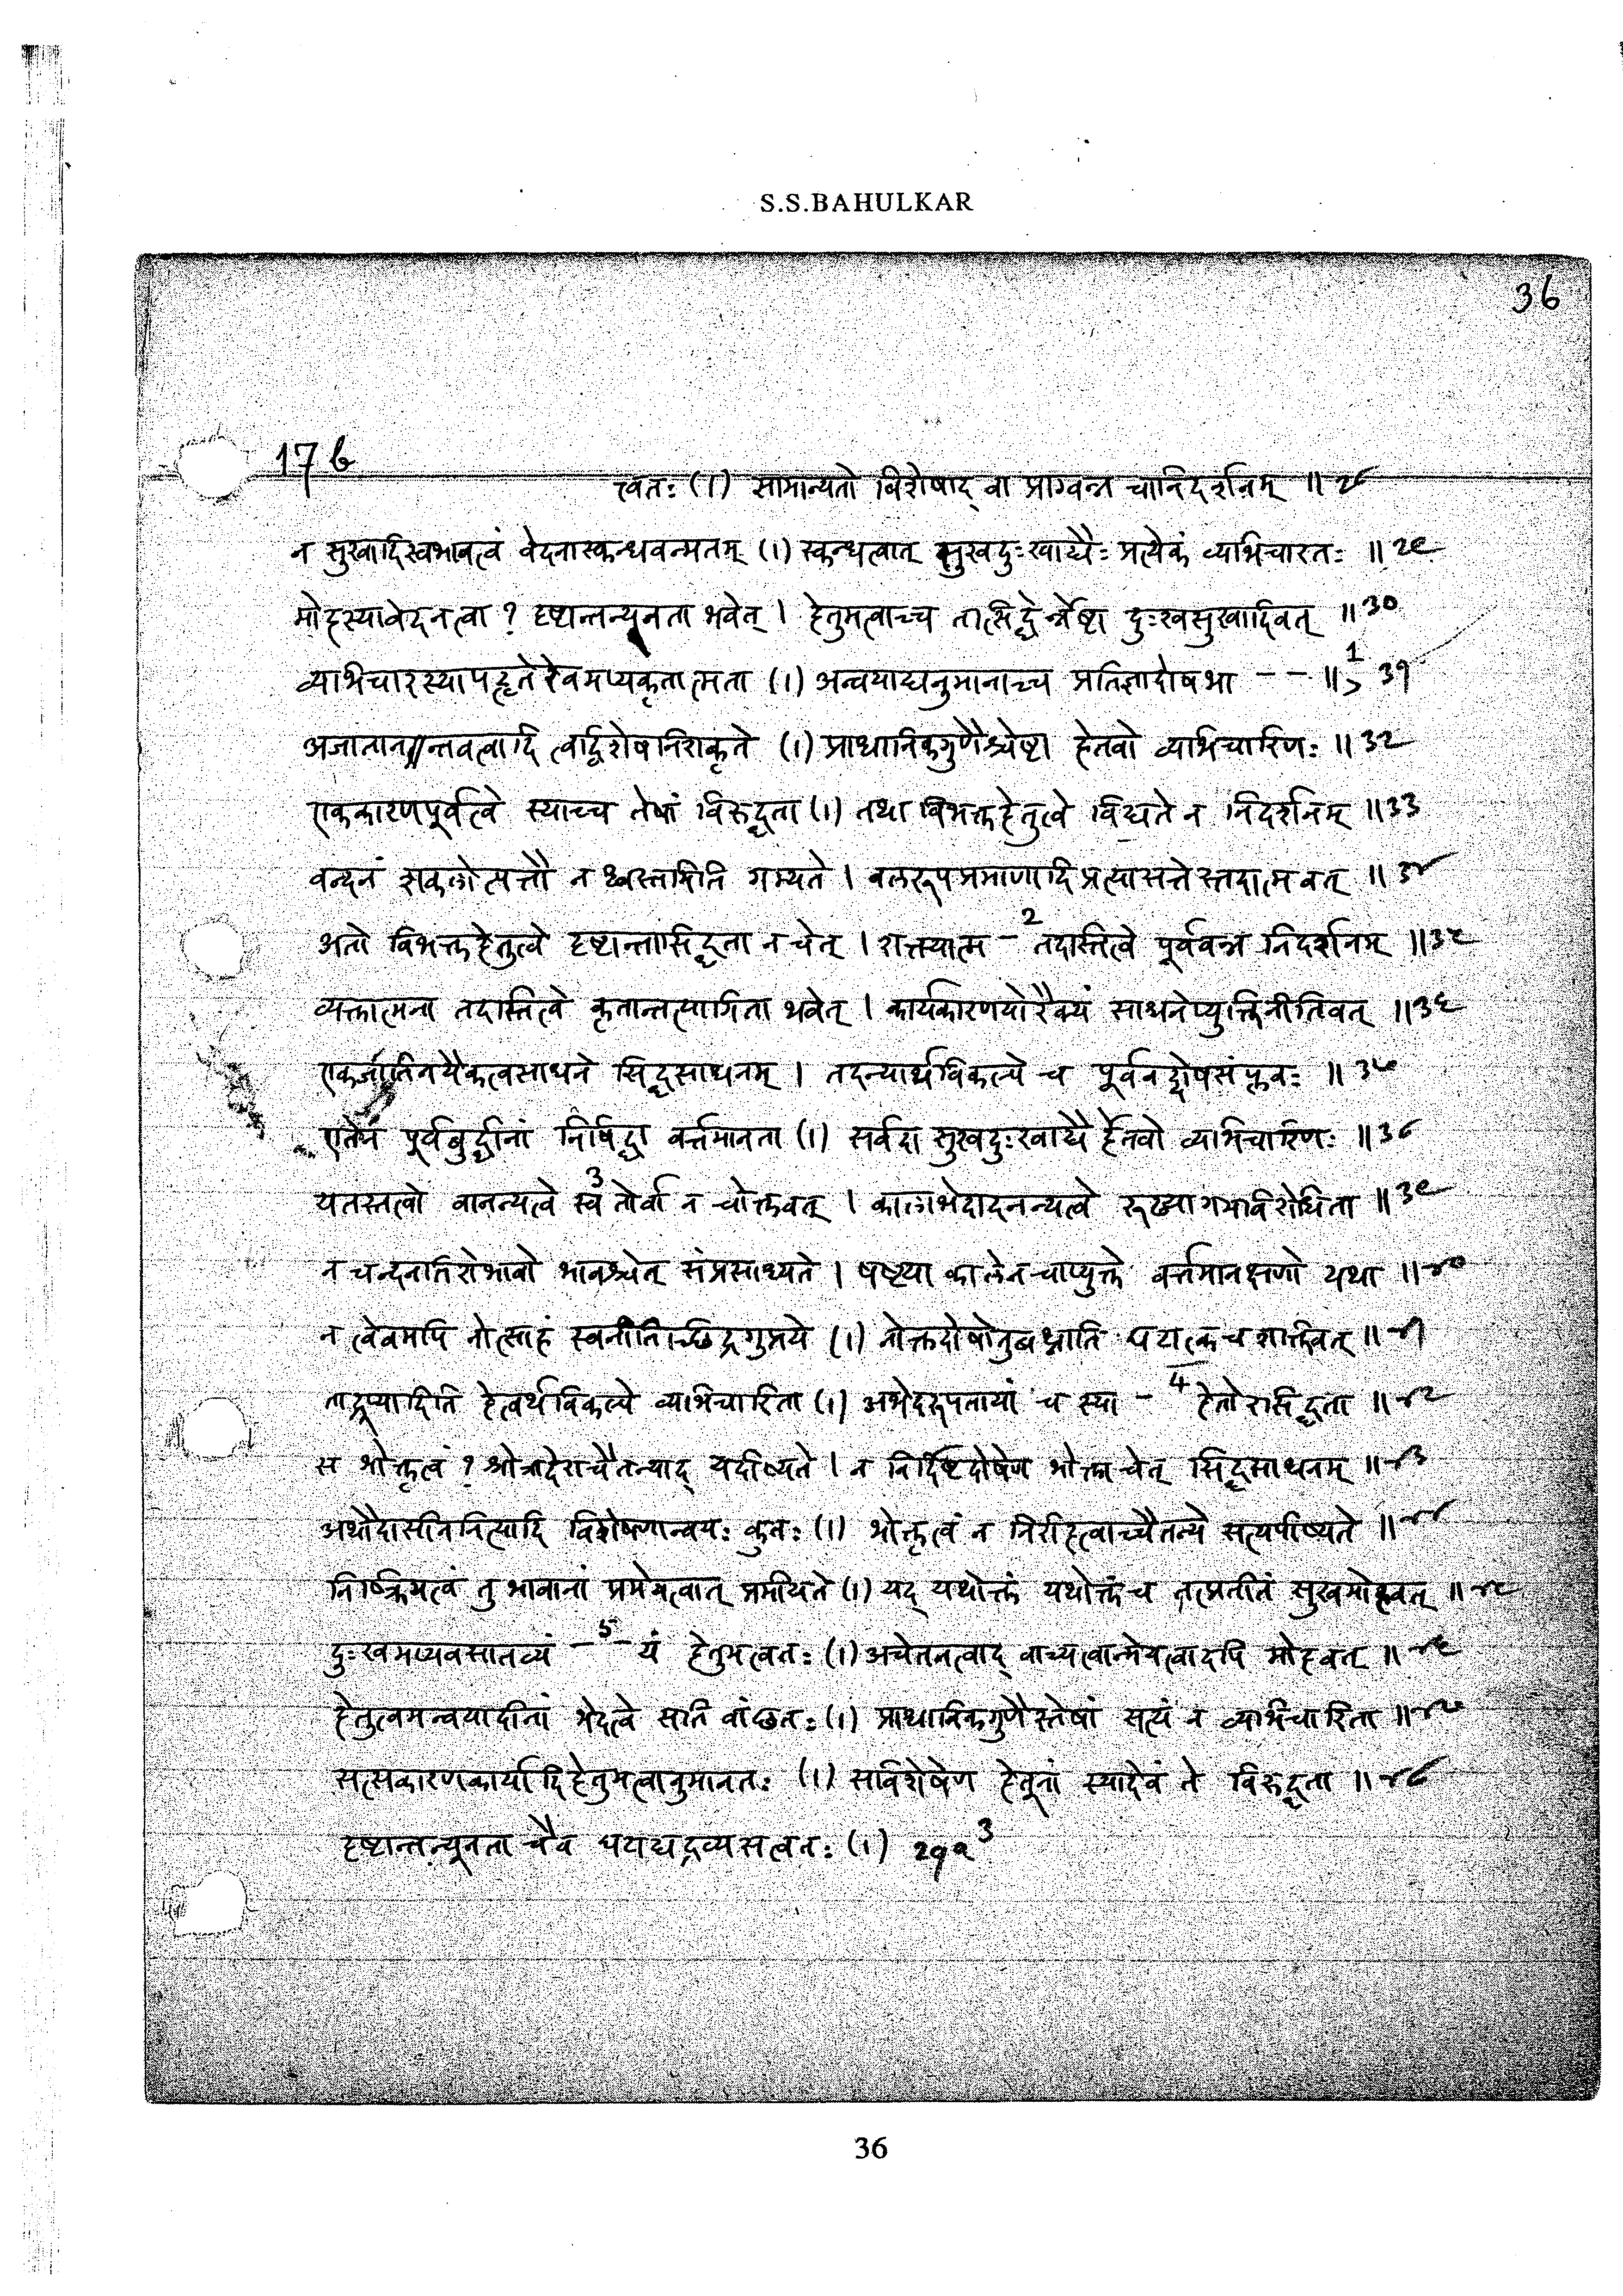 S.S.BAHULKAR
36
17b
त्वतः (।) सामान्यतो विशेषाद् वा प्राग्वन्न चानिदर्शनम् ॥ २८
न सुखादिस्वभावत्वं वेदनास्कन्धवन्मतम् (।) स्कन्धत्वात् सुखदुःखाद्यैः प्रत्येकं व्यभिचारतः ॥ २९
मोहस्यावेदनत्वा ? दृष्टान्तन्यूनता भवेत् । हेतुमत्वाच्च तत्सिद्धेर्न्नेष्टा दुःखसुखादिवत् ॥ ३०
व्यभिचारस्यापहृतेरेवमप्यकृतात्मता (।) अन्वयाद्यनुमानाच्च प्रतिज्ञादोषभा – – ॥ 1 ३१
अजातानन्तवत्वादि त्वद्विशेषनिराकृते (।) प्राधानिकगुणैश्चेष्टा हेतवो व्यभिचारिणः ॥ ३२
एककारणपूर्वत्वे स्याच्च तेषां विरुद्धता (।) तथा विभक्तहेतुत्वे विद्यते न निदर्शनम् ॥ ३३
वन्दनं शकलोत्पत्तौ न ध्वस्तमिति गम्यते । बलरूपप्रमाणादि प्रत्यासत्तेस्तदात्मवत् ॥ ३४
अतो विभक्तहेतुत्वे दृष्टान्तासिद्धता न चेत् । शक्त्यात्म – 2 तदास्तित्वे पूर्ववन्न निदर्शनम् ॥ ३५
व्यक्तात्मना तदास्तित्वे कृतान्तत्यागिता भवेत् । कार्यकारणयोरैक्यं साधनेप्युक्तिनीतिवत् ॥ ३६
एकजातितयैकत्वसाधने सिद्धसाधनम् । तदन्यार्थविकल्पे च पूर्ववद्दोषसंप्लवः ॥ ३७
एतेन पूर्वबुद्धीनां निषिद्धा वर्त्तमानता (।) सर्वदा सुखदुःखाद्यैर्हेतवो व्यभिचारिणः ॥ ३८
यतस्तत्वो वानन्यत्वे स्व 3 तोर्वा न चोक्तवत् । कालाभेदादनन्यत्वे रूढ्यागमविरोधिता ॥ ३९
न चन्दनतिरोभावो भावश्चेत् संप्रसाध्यते । षष्ट्या कालेन चाप्युक्ते वर्त्तमानक्षणो यथा ॥ ४०
न त्वेवमपि नोत्साहं स्वनीतिच्छिद्रगुप्तये (।) नोक्तदोषोनुबध्नाति घटात्कचशक्तिवत् ॥ ४१
ताद्रूप्यादिति हेत्वर्थविकल्पे व्यभिचारिता (।) अभेदरूपतायां च स्या – 4 हेतोरसिद्धता ॥ ४२
स भोक्तृत्वं ? श्रोत्रादेरचैतन्याद् यदीष्यते । न निर्दिष्टदोषेण भोक्ता चेत् सिद्धसाधनम् ॥ ४३
अथौदासीननित्यादि विशेषणान्वयः कुतः (।) भोक्तृत्वं न निरीहत्वाच्चैतन्ये सत्यपीष्यते ॥ ४४
निष्क्रियत्वं तु भावानां प्रमेयत्वात् प्रमीयते (।) यद् यथोक्तं यथोक्तं च तत्प्रतीतं सुखमोहवत् ॥ ४५
दुःखमप्यवसातव्यं – 5 – यं हेतुमत्वतः (।) अचेतनत्वाद् वाच्यत्वान्मेयत्वादपि मोहवत् ॥ ४६
हेतुत्वमन्वयादीनां भेदत्वे सति वांछतः (।) प्राधानिकगुणैस्तेषां सत्यं न व्यभिचारिता ॥ ४७
सत्सकारणकार्यादि हेतुमत्वानुमानतः (।) सविशेषेण हेतूनां स्यादेवं ते विरुद्धता ॥ ४८
दृष्टान्तन्यूनता चैव घटाद्यद्रव्यसत्वतः (।) २१२ 3
36